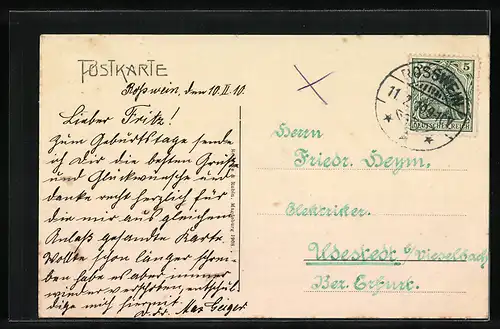 POSTKARTE
Roßwein, den 10.II.10.
Lieber Fritz!
Zum Geburtstage sende
ich Dir die besten Grüße
und Glückwünsche und
danke recht herzlich für
die mir aus gleichem
Anlaß gesandte Karte.
Wollte schon länger schrei-
ben habe es aber immer
wieder verschoben, entschul-
dige mich hiermit.
Max Geiger
Magdeburg 1906.
ROSSWEIN
11
5
DEUTSCHES REICH
Herrn
Friedr. Heym.
Elektriker.
Udestedt b/ Vieselbach
Bez. Erfurt.